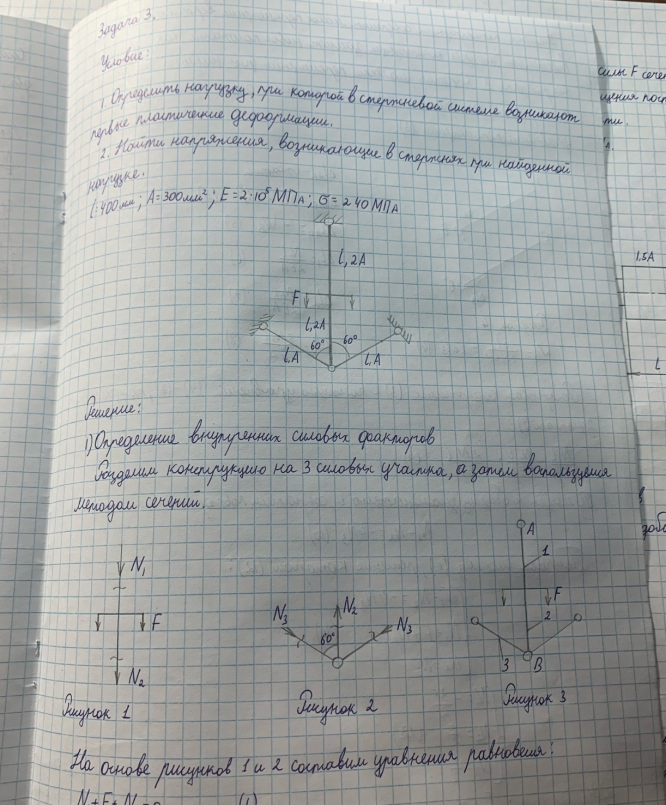 Задача 3.
Условие:
1. Определить нагрузку, при которой в стержневой системе возникают
первые пластические деформации.
2. Найти напряжения, возникающие в стержнях при найденной
нагрузке.
l=400мм; A=300мм²; E=2·10⁵ МПа; σ=240 МПа
l, 2A
F
l, 2A
60° 60°
l, A l, A
Решение:
1) Определение внутренних силовых факторов
Разделим конструкцию на 3 силовых участка, а затем вопользуемся
методом сечений.
N₁
F
N₂
Рисунок 1
N₃ N₂ N₃
60°
Рисунок 2
A
1
F
2
3 B
Рисунок 3
На основе рисунков 1 и 2 составим уравнения равновесия:
(1)
силы F
1,5A
l